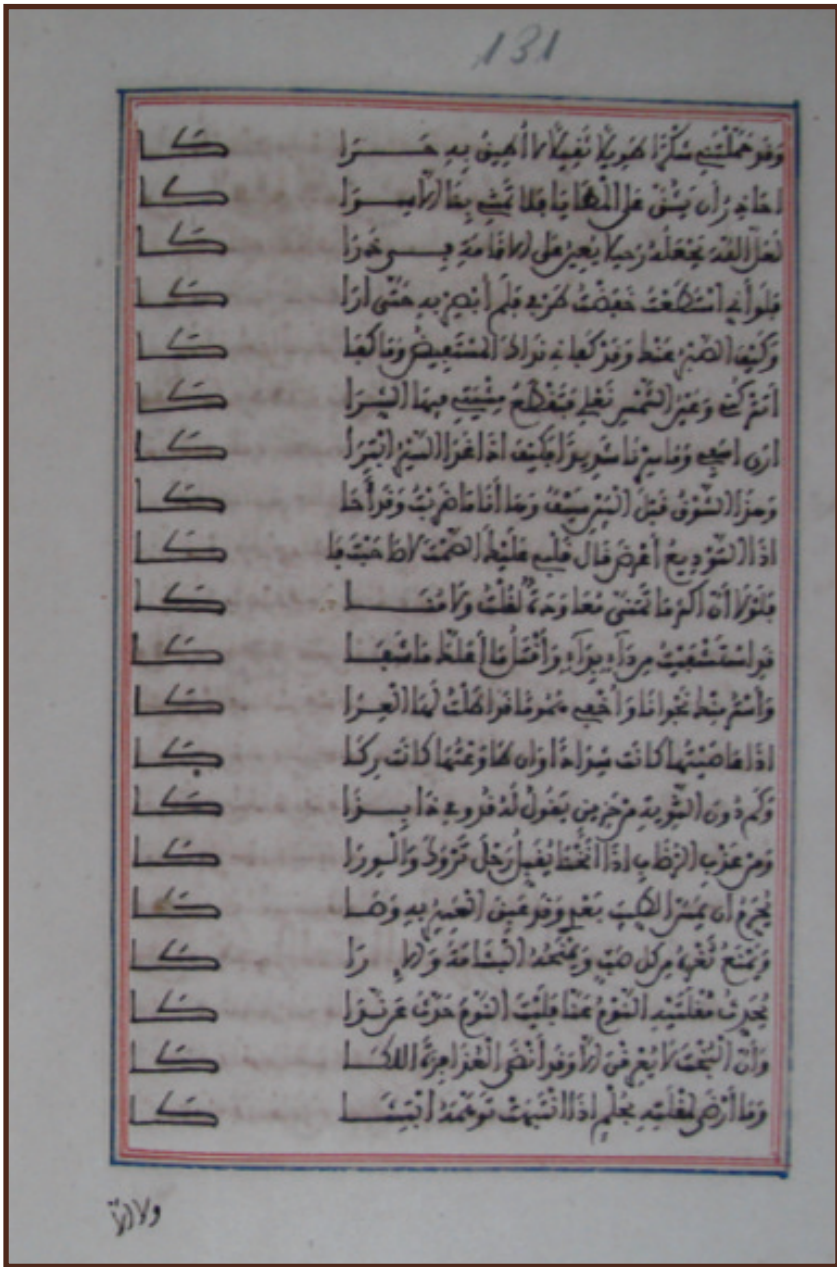 131
وقد حملتني شكرا طويلا ثقيلا لا أطيق به حرا كا
احاذر أن يشق على المطايا فلا تمشي بنا إلا سوا كا
لعل الله يجعله رحيلا يعين على الاقامة في ذرا كا
فلو أني استطعت خفضت طرفي فلم أبصر به حتى ارا كا
وكيف الصبر عنك وقد كفاني نداك المستفيض وما كفا كا
اتتركني وعين الشمس نعلي فتقطع مشيتي فيها الشرا كا
ارى اسفي وما سرنا شديدا فكيف اذا غدا السير ابترا كا
وهذا الشوق قبل البين سيف وها أنا ما ضربت وقد أحا كا
اذا التوديع أعرض قال قلبي عليك الصمت لا صاحبت فا كا
فلولا أن اكثر ما تمنى معاودة لقلت ولا منا كا
قد استشفيت من داء بداء وأقتل ما أعلك ما شفا كا
وأستر منك نجوانا وأخفي هموما قد اطلت لها العرا كا
اذا عاصيتها كانت شدادا وان طاوعتها كانت ركا كا
وكم دون الثوية من حزين يقول له قدومي ذا بذا كا
ومن عذب الرضاب اذا انخنا يقبل رحل تروك والورا كا
يحرم أن يمس الطيب بعدي وقد عبق العبير به وصا كا
ويمنع ثغره من كل صب ويمنحه البشامة والارا كا
يحدث مقلتيه النوم عنا فليت النوم حدث عن ندا كا
وان البخت لا يعرقن الا وقد أنضى العذافرة اللكا كا
وما أرضى لمقلته بحلم اذا انتبهت توهمه ابتشا كا
ولا الا